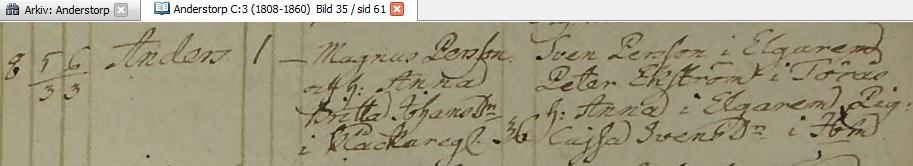 Arkiv: Anderstorp
Anderstorp C:3 (1808-1860) Bild 35 / sid 61
8 5/3 6/3 Anders 1 — Magnus Persson. Sven Persson i Elgarem
och h: Anna Peter Ekström i Törås
Britta Johansdr h: Anna i Elgarem, Pig:
i Klackaregl. 36 Cajsa Svensdr i